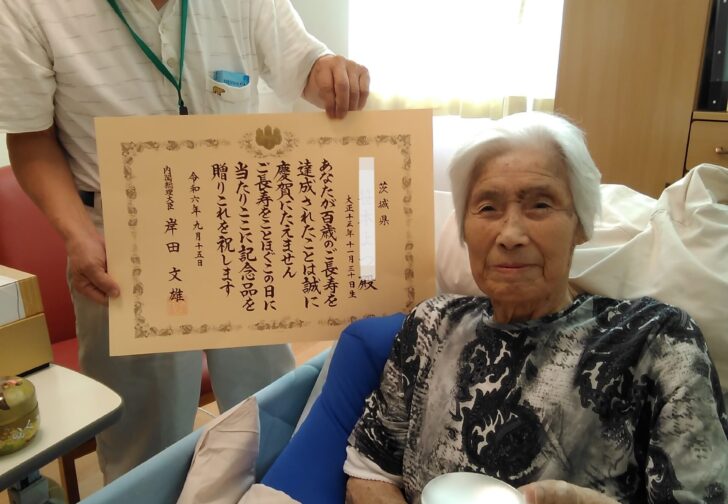 茨城県
殿
大正十三年十一月三十日生
あなたが百歳のご長寿を
達成されたことは誠に
慶賀にたえません
ご長寿をことほぐこの日に
当たりここに記念品を
贈りこれを祝します
令和六年九月十五日
内閣総理大臣 岸田文雄